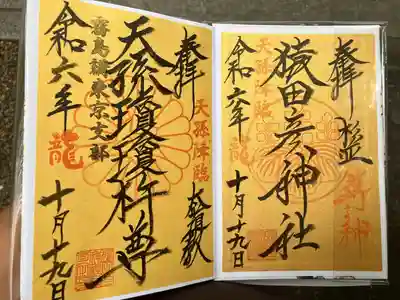 奉拝
天孫降臨
猿田彦神社
令和六年
龍
十月十九日
奉拝
天孫降臨
天孫瓊瓊杵尊
霧島講東京支部
令和六年
龍
十月十九日